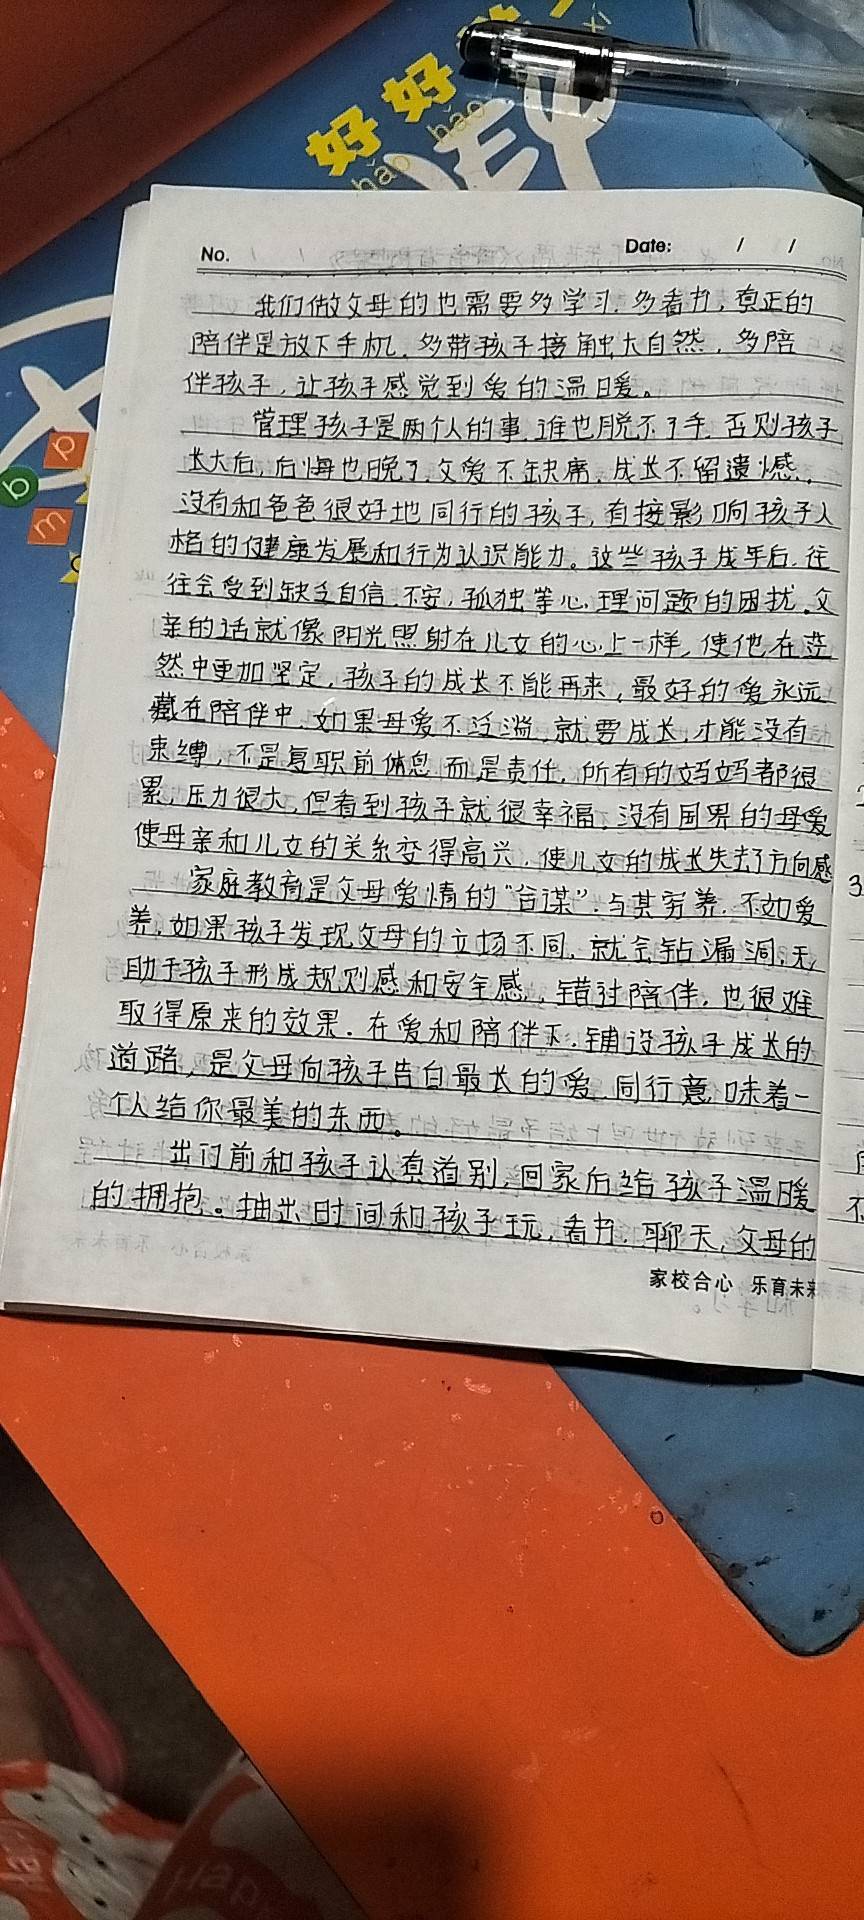 好好
hǎo hǎo
xí
p
b
m
No.
Date: / /
我们做父母的也需要多学习.多看书,真正的
陪伴是放下手机.多带孩子接触大自然,多陪
伴孩子,让孩子感觉到爱的温暖。
管理孩子是两个人的事.谁也脱不了手.否则孩子
长大后,后悔也晚了.父爱不缺席.成长不留遗憾.
没有和爸爸很好地同行的孩子,直接影响孩子人
格的健康发展和行为认识能力。这些孩子成年后.往
往会受到缺乏自信.不安.孤独等心理问题的困扰.父
亲的话就像阳光照射在儿女的心上一样,使他在茫
然中更加坚定,孩子的成长不能再来,最好的爱永远
藏在陪伴中.如果母爱不泛滥.就要成长,才能没有
束缚,不是复职前休息.而是责任.所有的妈妈都很
累,压力很大,但看到孩子就很幸福.没有国界的母爱
使母亲和儿女的关系变得高兴.使儿女的成长失去了方向感
家庭教育是父母爱情的“合谋”.与其穷养.不如爱
养,如果孩子发现父母的立场不同.就会钻漏洞,无
助于孩子形成规则感和安全感.,错过陪伴.也很难
取得原来的效果.在爱和陪伴下.铺设孩子成长的
道路,是父母向孩子告白最长的爱.同行意味着一
个人给你最美的东西。
出门前和孩子认真道别,回家后给孩子温暖
的拥抱。抽出时间和孩子玩,看书,聊天,父母的
家校合心 乐育未来
3